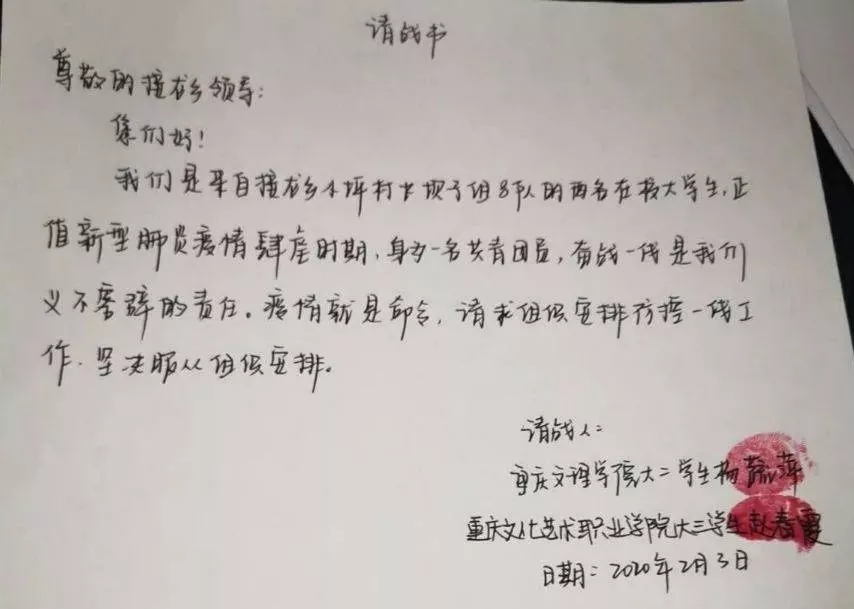 请战书
尊敬的接龙乡领导：
您们好！
我们是来自接龙乡小坪村大坝子组8队人的两名在校大学生，正
值新型肺炎疫情肆虐时期，身为一名共青团员，奋战一线是我们
义不容辞的责任。疫情就是命令，请求组织安排防控一线工
作，坚决服从组织安排。
请战人：
重庆文理学院大二学生杨蕊萍
重庆文化艺术职业学院大三学生赵春霞
日期：2020年2月3日